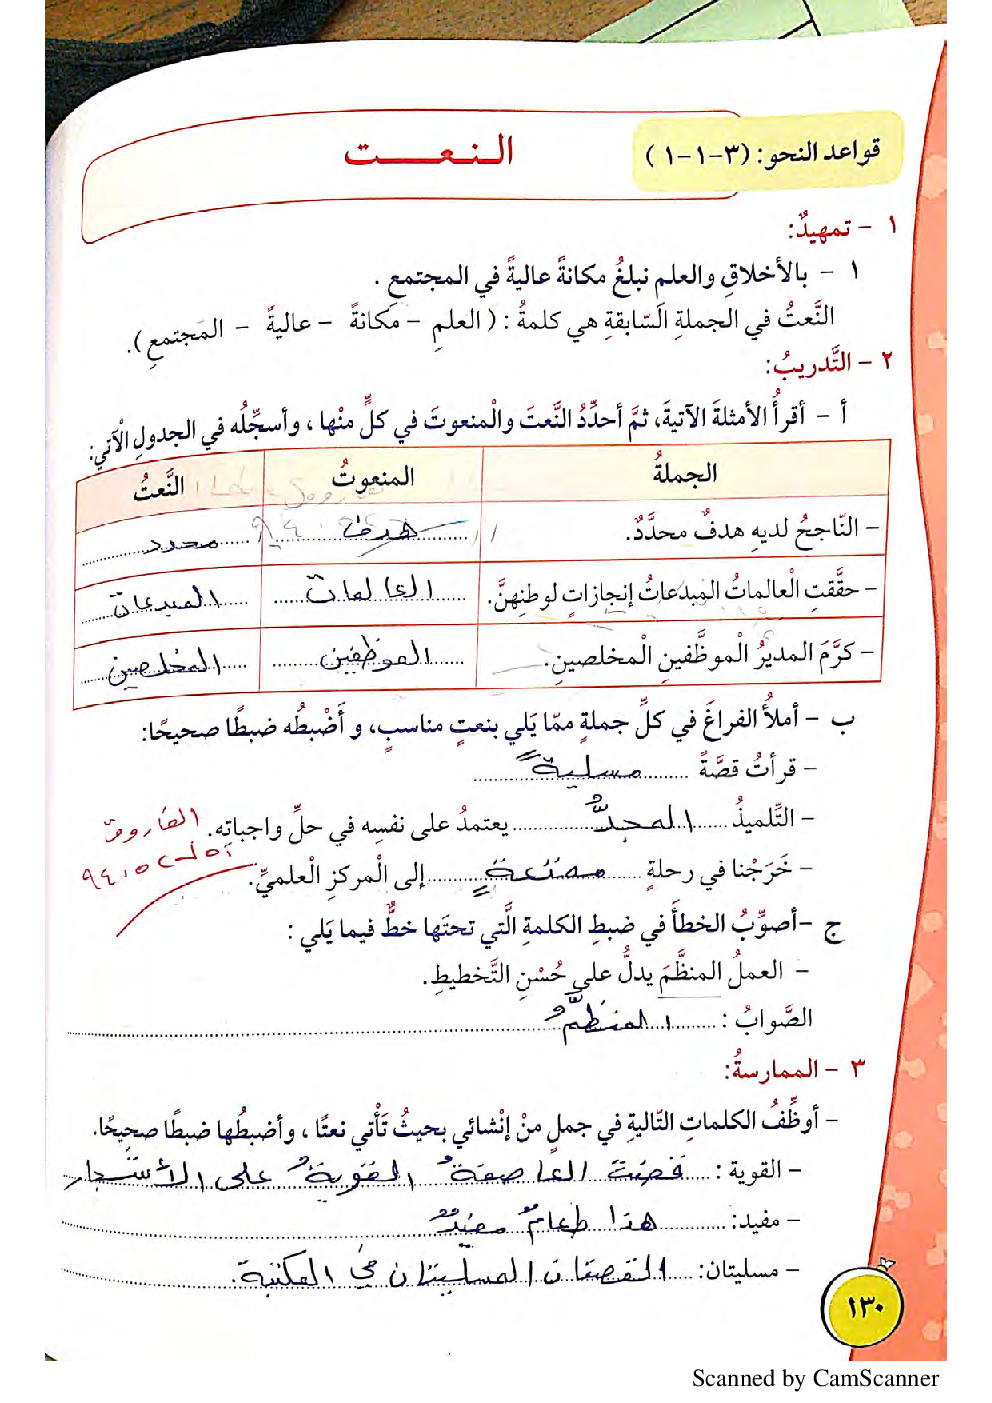 قواعد النحو: (٣-١-١)
النعت
١ - تمهيدٌ:
١ - بالأخلاقِ والعلمِ نبلغُ مكانةً عاليةً في المجتمعِ.
النَّعتُ في الجملةِ السّابقةِ هي كلمةُ: (العلمِ - مكانةً - عاليةً - المجتمعِ).
٢ - التَّدريبُ:
أ - أقرأُ الأمثلةَ الآتيةَ، ثمَّ أحدِّدُ النَّعتَ والْمنعوتَ في كلٍّ منْها، وأسجِّلُه في الجدولِ الْآتي:
الجملةُ المنعوتُ النَّعتُ
- النّاجحُ لديهِ هدفٌ محدَّدٌ. هدف محدد
- حقَّقتِ الْعالماتُ المبدعاتُ إنجازاتٍ لوطنِهنَّ. العالمات المبدعات
- كرَّمَ المديرُ الْموظَّفينِ الْمخلصينِ. الموظفين المخلصين
ب - أملأُ الفراغَ في كلِّ جملةٍ ممّا يَلي بنعتٍ مناسبٍ، و أَضْبطُه ضبطًا صحيحًا:
- قرأتُ قصَّةً مسليةً
- التِّلميذُ المجدُّ يعتمدُ على نفسِه في حلِّ واجباتِه.
الفاروق
- خَرَجْنا في رحلةٍ ممتعةٍ إلى الْمركزِ الْعلميِّ.
ج - أصوِّبُ الخطأَ في ضبطِ الكلمةِ الَّتي تحتَها خطٌّ فيما يَلي:
- العملُ المنظَّمَ يدلُّ على حُسْنِ التَّخطيطِ.
الصَّوابُ: المنظمُ
٣ - الممارسةُ:
- أوظِّفُ الكلماتِ التّاليةِ في جملٍ منْ إنْشائي بحيثُ تَأْتي نعتًا، وأضبطُها ضبطًا صحيحًا.
- القوية: العاصفةُ القويةُ على الأشجار
- مفيد: هذا طعامٌ مفيدٌ
- مسليتان: القصتان المسليتان في المكتبة.
١٣٠
Scanned by CamScanner